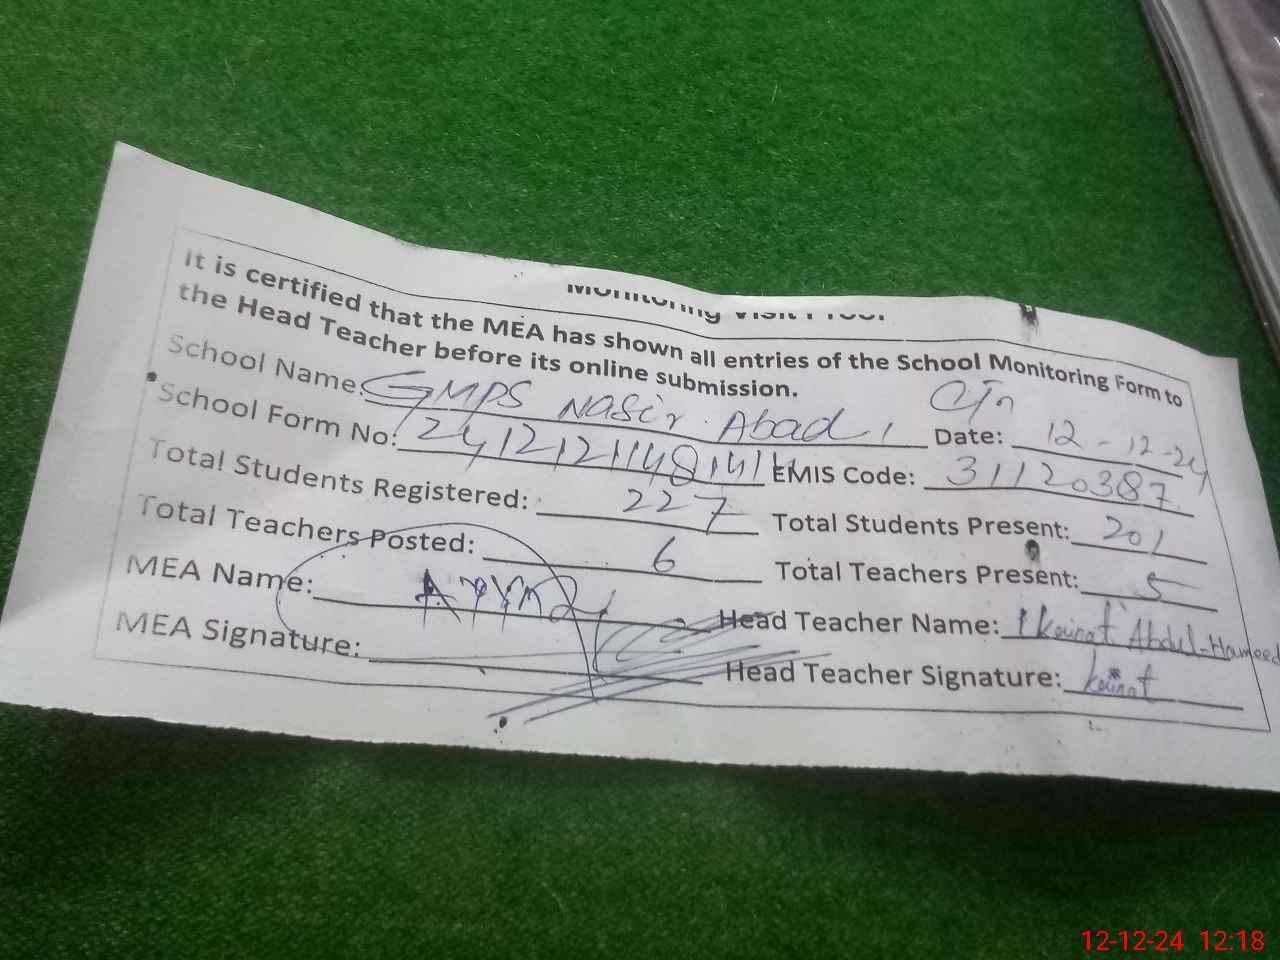 Monitoring Visit Proof
It is certified that the MEA has shown all entries of the School Monitoring Form to
the Head Teacher before its online submission.
School Name: GMPS Nasir Abad Date: 12-12-24
School Form No: EMIS Code: 31120387
Total Students Registered: 227 Total Students Present: 201
Total Teachers Posted: 6 Total Teachers Present: 5
MEA Name: Head Teacher Name: Kainat Abdul-Hameed
MEA Signature: Head Teacher Signature: kainat
12-12-24 12:18